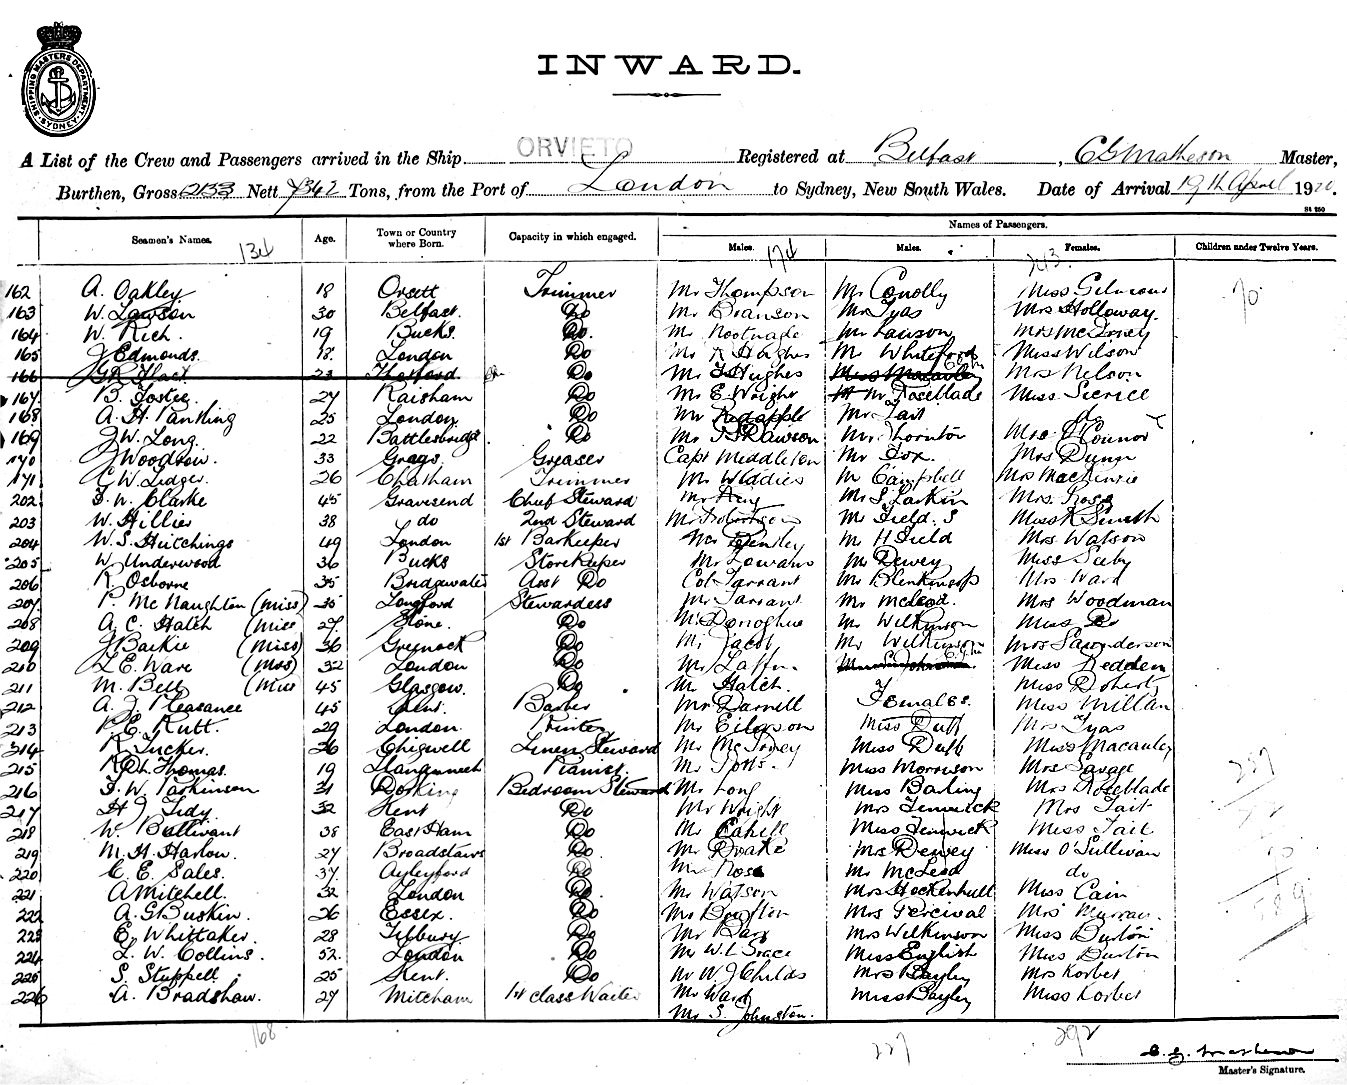 SHIPPING MASTERS DEPARTMENT
SYDNEY
INWARD.
A List of the Crew and Passengers arrived in the Ship ORVIETO Registered at Belfast, C G Matheson Master,
Burthen, Gross 2133 Nett 7342 Tons, from the Port of London to Sydney, New South Wales. Date of Arrival 19th April 1920.
St 250
Seamen's Names. Age. Town or Country where Born. Capacity in which engaged. Names of Passengers.
Males. Males. Females. Children under Twelve Years.
134 174 243
162 A. Oakley 18 Orsett Trimmer Mr Thompson Mr Conolly Miss Gilmour 70
163 W. Lawson 30 Belfast Do Mr Branson Mr Tyas Mrs Holloway
164 W. Rich 19 Bucks. Do Mr Nootnage Mr Lawson Mrs McInney
165 J Edmonds. 18. London Do Mr R Hughes Mr Whiteford Miss Wilson
166 23 Thetford Do Mr T Hughes Mrs Nelson
167 B. Foster 27 Raisham Do Mr E. Wright Mr Roseblade Miss
168 A. H. Pantling 25 London Do Mr Mr Tait do
169 J W. Long. 22 Battlesbridge Do Mr Dawson Mr Thornton Mrs O'Connor
170 J Woodson. 33 Grays Greaser Capt Middleton Mr Fox. Mrs Dunn
171 C W. Ledger 26 Chatham Trimmer Mr Widdies Mr Campbell Mrs MacKenzie
202 F. W. Clarke 45 Gravesend Chief Steward Mr Mr S Larkin Mrs. Ross
203 W. Hillier 38 do 2nd Steward Mr Robertson Mr Field. S Miss K Smith
204 W. S. Hutchings 49 London 1st Barkeeper Mr Bentley Mr H Field Mrs Watson
205 W Underwood 36 Bucks Storekeeper Mr Dewey Miss Seeby
206 R. Osborne 35 Bridgwater Asst Do Col Tarrant Mr Blenkinsop Mrs Ward
207 P. McNaughton (Miss) 35 Longford Stewardess Mr Tarrant Mr McLeod. Mrs Woodman
208 A. C. Hatch (Miss 27 Stone. Do Mr Donoghue Mr Wilkinson Miss Do
209 J Baikie (Miss) 36 Greenock Do Mr Jacob Mr Wilkinson Mrs Saounderson
210 L. E. Ware (Mrs) 32 London Do Mr Laffin Miss Redden
211 M. Bell (Miss 45 Glasgow. Do Mr Hatch. Miss Doherty
212 A. J. Pleasance 45 Kent. Barber Mr Darnell Females. Miss Millan
213 P. E. Rutt. 29 London. Printer Mr Eilerson Miss Duff Mrs Tyas
214 R Tucker. 26 Chigwell Linen Steward Mr McInney Miss Duff Miss Macauley
215 R. Dl. Thomas. 19 Llangennech Pianist. Mr Potts. Miss Morrison Mrs Savage 227
216 F. W. Parkinson 31 Dorking Bedroom Steward Mr Long Miss Barling Mrs Roseblade
217 H J Tidy 32 Kent Do Mr Wright Mrs Fenwick Mrs Tait
218 W. Bullivant 38 East Ham Do Mr Cahill Miss Fenwick Miss Tait
219 M. H. Harlow. 27 Broadstairs Do Mr Drake Mrs Dewey Miss O'Sullivan 70
220 C. E. Sales. 37 Ayleyford Do Mr Ross Mr McLeod do
221 A Mitchell. 32 London Do Mr Watson Mrs Hockenhull Miss Cain 589
222 A. G. Buskin. 26 Essex. Do Mr Burton Mrs Percival Mrs Murran.
223 E. Whittaker. 28 Tilbury Do Mr Barr Mrs Wilkinson Miss Burton
224 L. W. Collins. 52. London Do Mr W. L. Grace Miss English Miss Burton
225 S. Stuppell. 25 Kent. Do Mr W J Childs Mrs Bayley Mrs Korbet
226 A. Bradshaw. 27 Mitcham 1st class Waiter Mr Ward Miss Bayley Miss Korbet
Mr S. Johnston.
168 227 292
C. G. Matheson
Master's Signature.